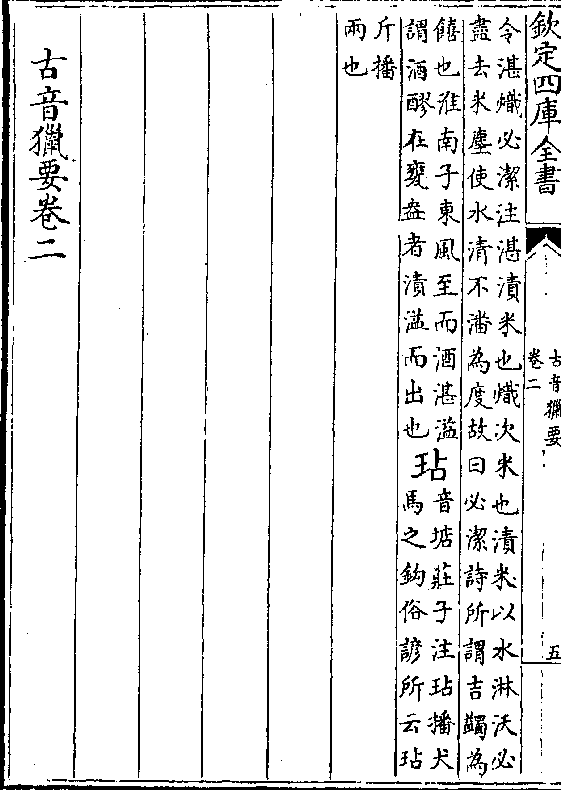 欽定四庫全書
古音獵要
卷二
五
令湛熾必潔注湛漬米也熾次米也漬米以水淋沃必
盡去米塵使水清不潘為度故曰必潔詩所謂吉蠲為
饎也淮南子東風至而酒湛溢
謂酒醪在甕盎者漬溢而出也
玷
音掂莊子注玷播犬
馬之鈎俗諺所云玷
斤播
兩也
古音獵要卷二